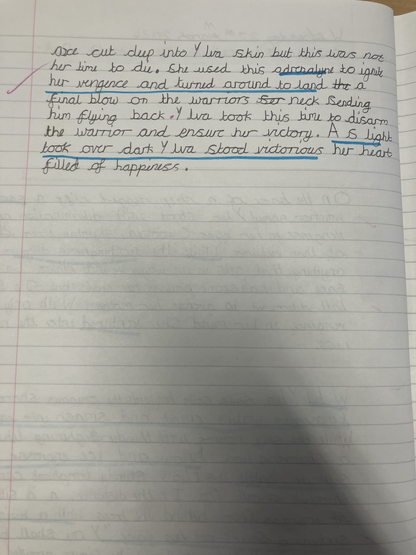 axe cut deep into Ylva skin but this was not
her time to die. She used this adronalyne to ignite
her vergence and turned around to land the a
final blow on the warriors neck sending
him flying back. Ylva took this time to disarm
the warrior and ensure her victory. As light
took over dark Ylva stood victorious her heart
filled of happiness.